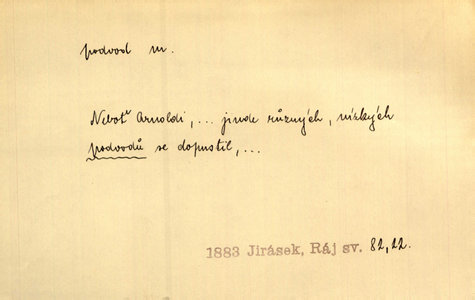 podvod m.
Neboť Arnoldi, ... jinde různých, nízkých
podvodů se dopustil, ...
1883 Jirásek, Ráj sv. 82,22.